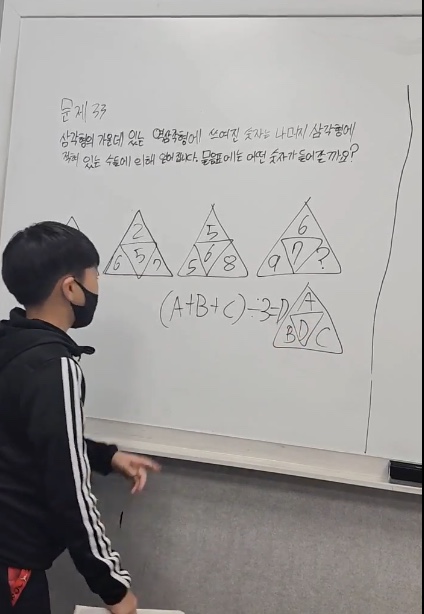 문제 33
삼각형의 가운데 있는 역삼각형에 쓰여진 숫자는 나머지 삼각형에
적혀 있는 수들에 의해 얻어집니다. 물음표에는 어떤 숫자가 들어갈까요?
2
6 5 7
5
5 6 8
6
9 7 ?
(A+B+C)÷3=D
A
B D C